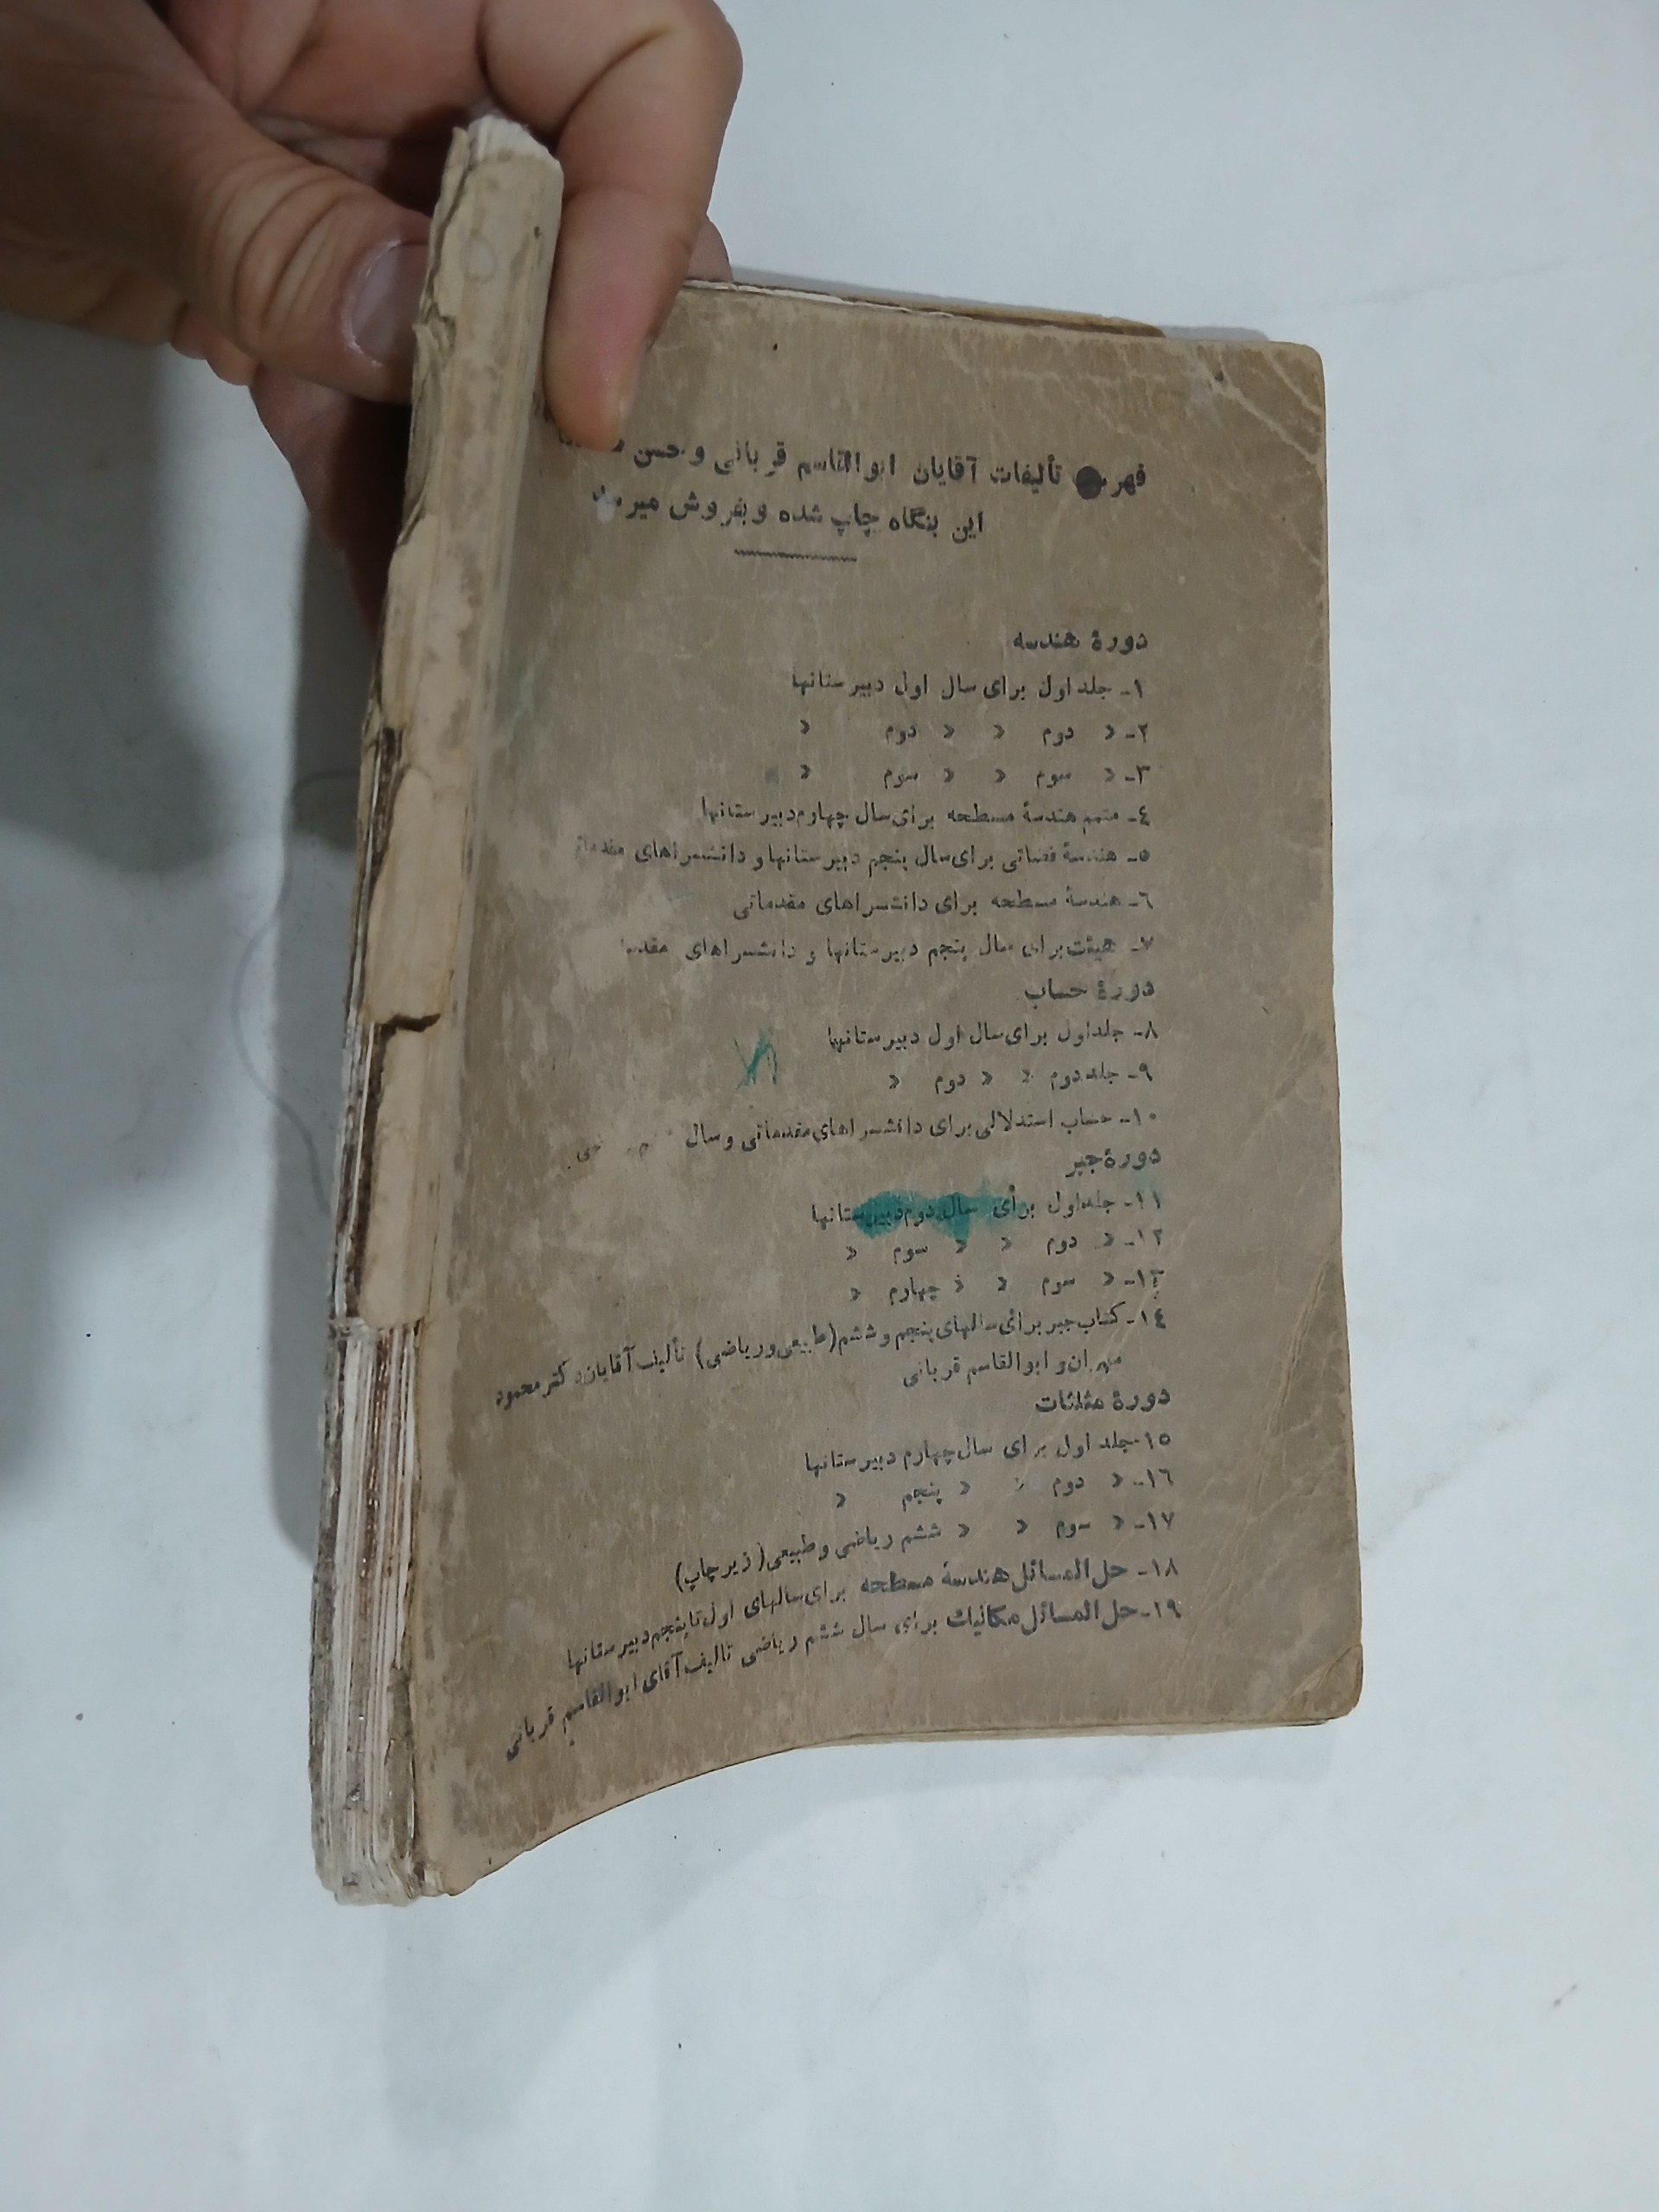 تألیفات آقایان ابوالقاسم قربانی و حسن
این بنگاه چاپ شده و بفروش میرسد
دورهٔ هندسه
۱- جلد اول برای سال اول دبیرستانها
۲- « دوم « « دوم «
۳- « سوم « « سوم «
٤- متمم هندسهٔ مسطحه برای سال چهارم دبیرستانها
٥- هندسهٔ فضائی برای سال پنجم دبیرستانها و دانشسراهای
٦- هندسهٔ مسطحه برای دانشسراهای مقدماتی
۷- هیئت برای سال پنجم دبیرستانها و دانشسراهای
دورهٔ حساب
۸- جلد اول برای سال اول دبیرستانها
۹- جلد دوم « « دوم «
۱۰- حساب استدلالی برای دانشسراهای مقدماتی و سال
دورهٔ جبر
۱۱- جلد اول برای سال دوم دبیرستانها
۱۲- « دوم « « سوم «
۱۳- « سوم « « چهارم «
۱٤- کتاب جبر برای سالهای پنجم و ششم (طبیعی و ریاضی) تألیف آقایان دکتر محمود
مهران و ابوالقاسم قربانی
دورهٔ مثلثات
۱٥- جلد اول برای سال چهارم دبیرستانها
۱٦- « دوم « « پنجم «
۱۷- « سوم « « ششم ریاضی و طبیعی (زیر چاپ)
۱۸- حل المسائل هندسهٔ مسطحه برای سالهای اول تا پنجم دبیرستانها
۱۹- حل المسائل مکانیک برای سال ششم ریاضی تالیف آقای ابوالقاسم قربانی